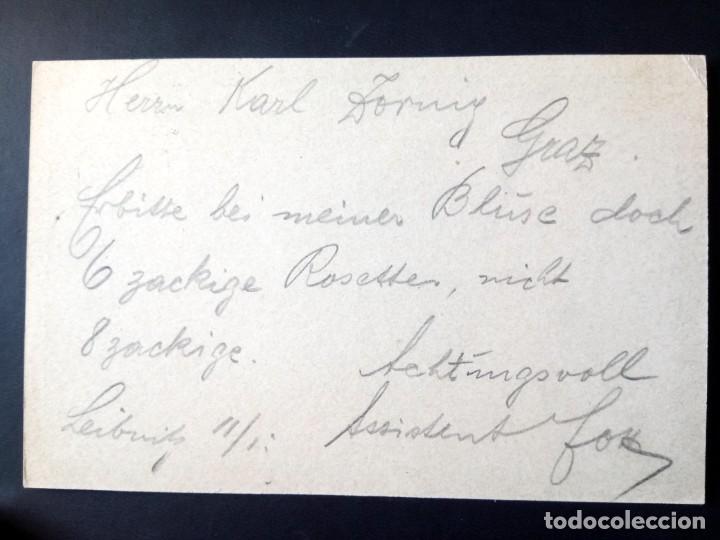 Herrn Karl Zornig
Graz.
Erbitte bei meiner Bluse doch
6 zackige Rosetten, nicht
8 zackige.
Achtungsvoll
Leibnitz 11/1. Assistent
todocoleccion
todocoleccion.net